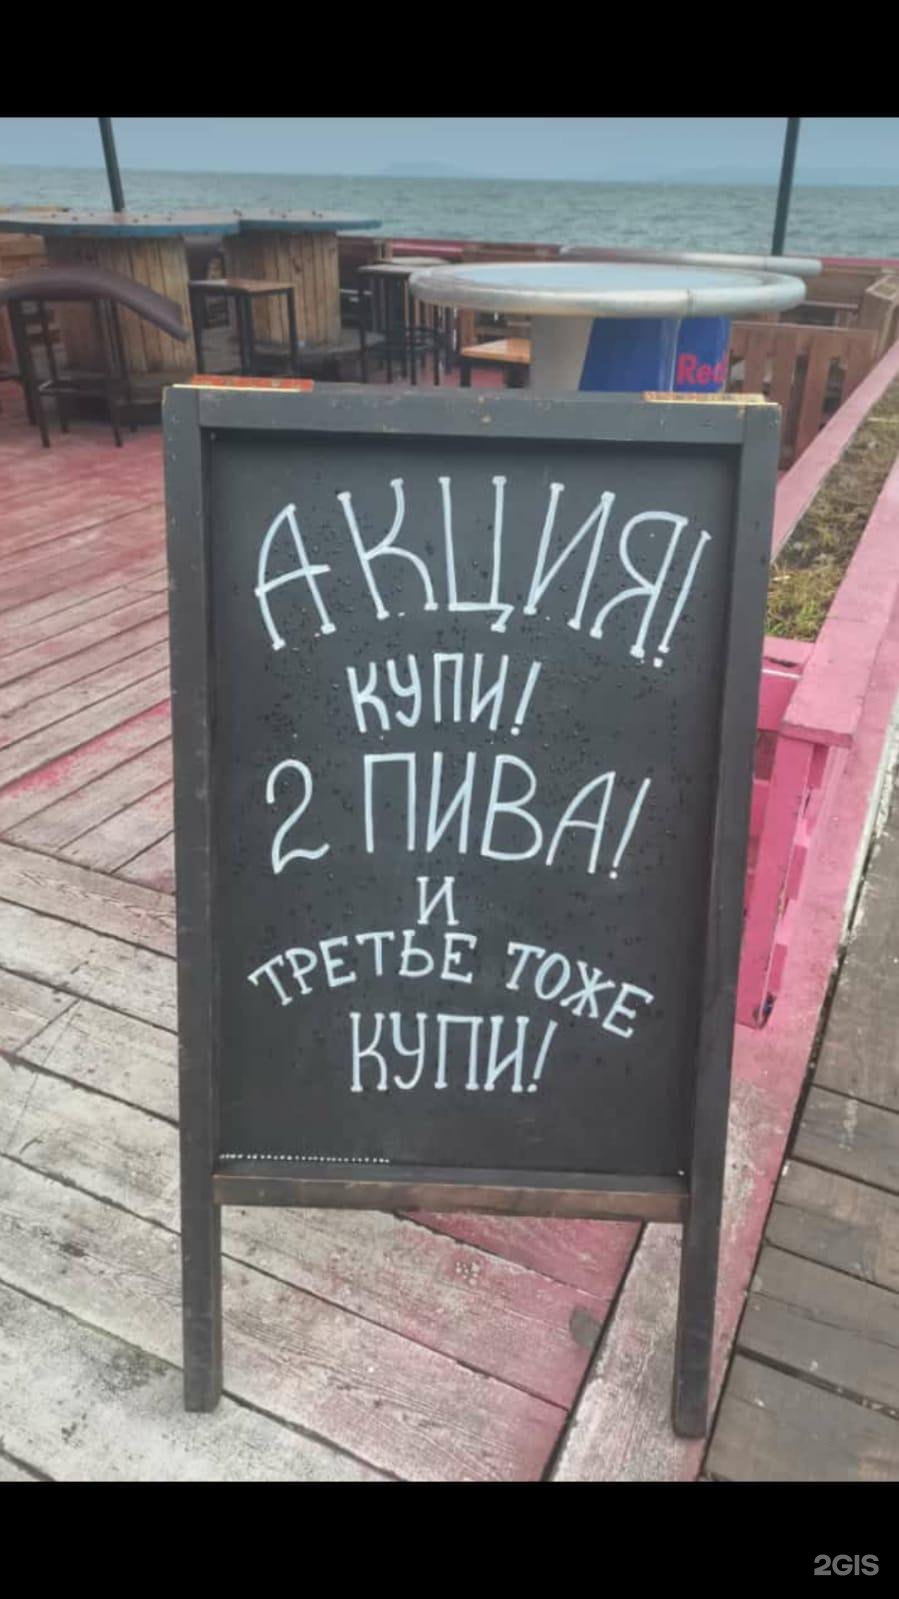 Red
АКЦИЯ!
КУПИ!
2 ПИВА!
И
ТРЕТЬЕ ТОЖЕ
КУПИ!
2GIS